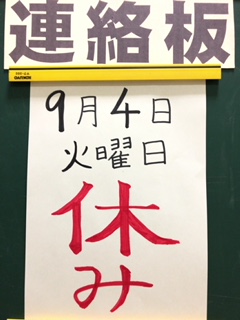 連絡板
9月4日
火曜日
休
み